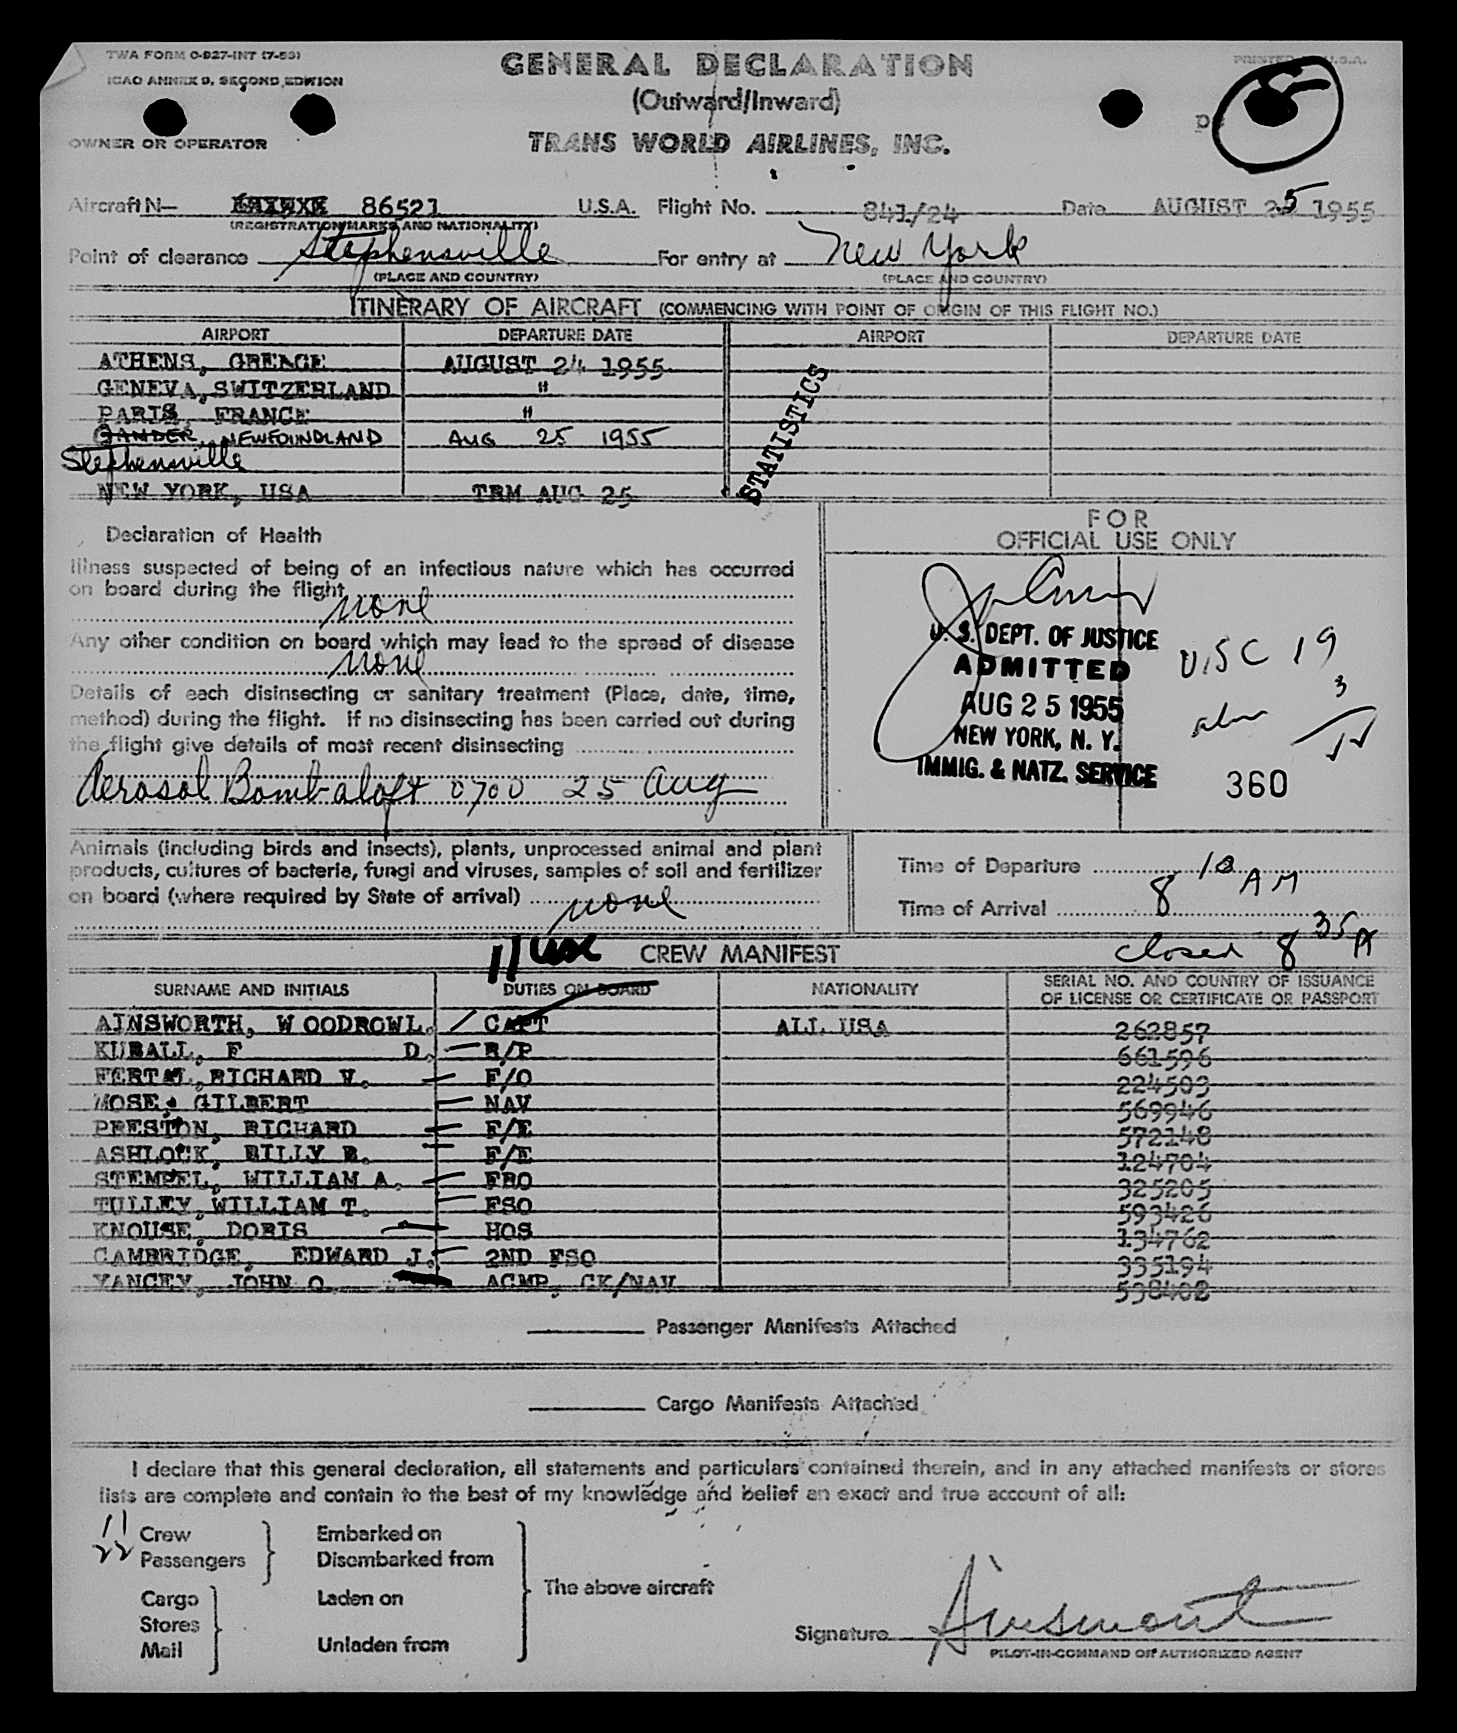 TWA FORM O-927-INT (7-53)
ICAO ANNEX 9, SECOND EDITION
GENERAL DECLARATION
(Outward/Inward)
TRANS WORLD AIRLINES, INC.
OWNER OR OPERATOR
Aircraft N— 86521 U.S.A. Flight No. 841/24 Date AUGUST 25 1955
(REGISTRATION MARKS AND NATIONALITY)
Point of clearance Stephensville For entry at New York
(PLACE AND COUNTRY) (PLACE AND COUNTRY)
ITINERARY OF AIRCRAFT (COMMENCING WITH POINT OF ORIGIN OF THIS FLIGHT NO.)
AIRPORT DEPARTURE DATE AIRPORT DEPARTURE DATE
ATHENS, GREECE AUGUST 24 1955
GENEVA, SWITZERLAND "
PARIS, FRANCE "
GANDER, NEWFOUNDLAND AUG 25 1955
Stephensville
NEW YORK, USA TRM AUG 25
STATISTICS
Declaration of Health
Illness suspected of being of an infectious nature which has occurred
on board during the flight
none
Any other condition on board which may lead to the spread of disease
none
Details of each disinsecting or sanitary treatment (Place, date, time,
method) during the flight. If no disinsecting has been carried out during
the flight give details of most recent disinsecting
Aerosol Bomb aloft 0700 25 Aug
FOR
OFFICIAL USE ONLY
U. S. DEPT. OF JUSTICE
ADMITTED
AUG 25 1955
NEW YORK, N. Y.
IMMIG. & NATZ. SERVICE
USC 19
3
360
Animals (including birds and insects), plants, unprocessed animal and plant
products, cultures of bacteria, fungi and viruses, samples of soil and fertilizer
on board (where required by State of arrival)
none
Time of Departure
Time of Arrival 8 10 AM
closed 8 35 A
CREW MANIFEST
SURNAME AND INITIALS DUTIES ON BOARD NATIONALITY SERIAL NO. AND COUNTRY OF ISSUANCE
OF LICENSE OR CERTIFICATE OR PASSPORT
AINSWORTH, WOODROW L. CAPT ALL USA 262857
KUBALL, F D. R/P 661596
FERTAL, RICHARD V. F/O 224503
MOSE, GILBERT NAV 569946
PRESTON, RICHARD F/E 572148
ASHLOCK, BILLY B. F/E 124704
STEMPEL, WILLIAM A. FRO 325205
TULLEY, WILLIAM T. FSO 593426
KNOUSE, DORIS HOS 134762
CAMBRIDGE, EDWARD J. 2ND FSO 335194
YANCEY, JOHN O. ACMP, CK/NAV 538408
Passenger Manifests Attached
Cargo Manifests Attached
I declare that this general declaration, all statements and particulars contained therein, and in any attached manifests or stores
lists are complete and contain to the best of my knowledge and belief an exact and true account of all:
11 Crew
22 Passengers
Cargo
Stores
Mail
Embarked on
Disembarked from
Laden on
Unladen from
The above aircraft
Signature Ainsworth
PILOT-IN-COMMAND OR AUTHORIZED AGENT